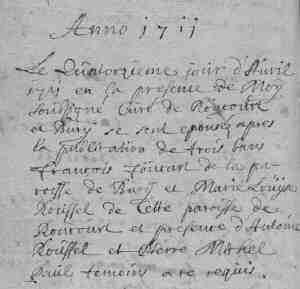 Anno 1711
Le Quatorzieme jour d'Avril
1711 en la presence de Moy
soussigné Curé de Roucourt
et Bury se sont epousez apres
la publication de trois bans
francois foucart de la pa-
roisse de Bury et Marie Louyse
Roussel de cette paroisse de
Roucourt et presence d'Antoine
Roussel et Pierre Michel
Paul temoins a ce requis.